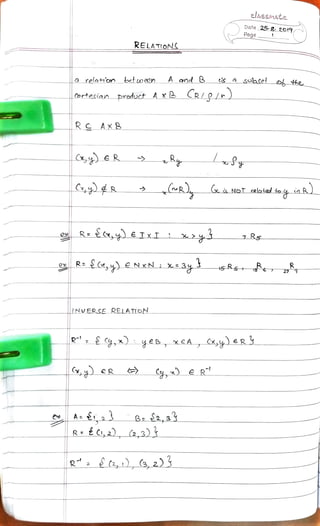 classmate
Date 25-2-2019
Page 1
RELATIONS
a relation between A and B is a subset of the
cartesian product A x B (R/ρ/r)
R ⊆ A×B
(x,y) ∈ R → xRy / xρy
(x,y) ∉ R → x(~R)y (x is NOT related to y in R)
ex R = {(x,y) ∈ I×I : x>y} 7R5
ex R = {(x,y) ∈ N×N : x=3y} 15R5,
INVERSE RELATION
R⁻¹ = {(y,x) : y∈B, x∈A, (x,y)∈R}
(x,y) ∈R ⇔ (y,x) ∈ R⁻¹
ex A = {1,2} B = {2,3}
R = {(1,2), (2,3)}
R⁻¹ = {(2,1), (3,2)}